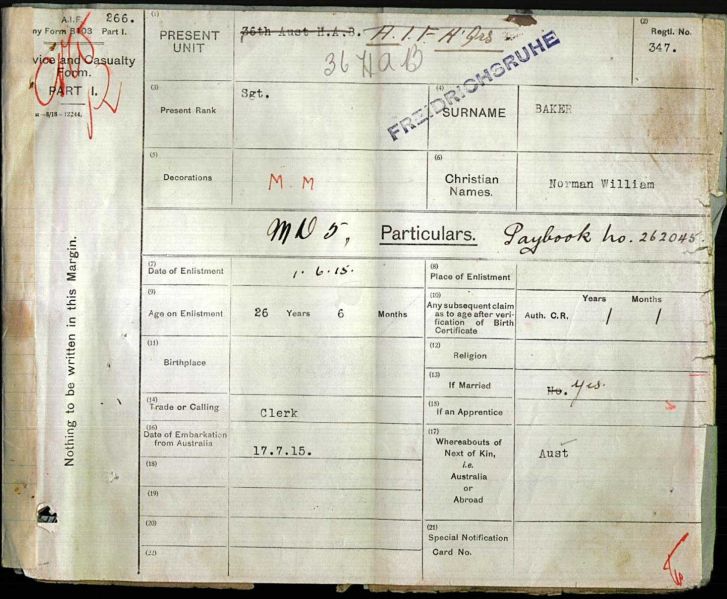 A.I.F. 266.
ny Form B103 Part I.
vice and Casualty
Form.
PART I.
—8/18—12244.
Nothing to be written in this Margin.
(1)
PRESENT
UNIT
36th Aust H.A.B. A.I.F H Qrs
36 HAB
(2)
Regtl. No.
347.
FREIDRICHSRUHE
(3)
Present Rank
Sgt.
(4)
SURNAME
BAKER
(5)
Decorations
M. M
(6)
Christian
Names.
Norman William
MD 5, Particulars. Paybook no. 262045.
(7)
Date of Enlistment
1.6.15.
(8)
Place of Enlistment
(9)
Age on Enlistment
26 Years 6 Months
(10)
Any subsequent claim
as to age after veri-
fication of Birth
Certificate
Auth. C.R. Years Months
/ /
(11)
Birthplace
(12)
Religion
(13)
If Married
No. Yes.
(14)
Trade or Calling
Clerk
(15)
If an Apprentice
(16)
Date of Embarkation
from Australia
17.7.15.
(17)
Whereabouts of
Next of Kin,
i.e.
Australia
or
Abroad
Aust
(18)
(19)
(20)
(21)
Special Notification
Card No.
(22)